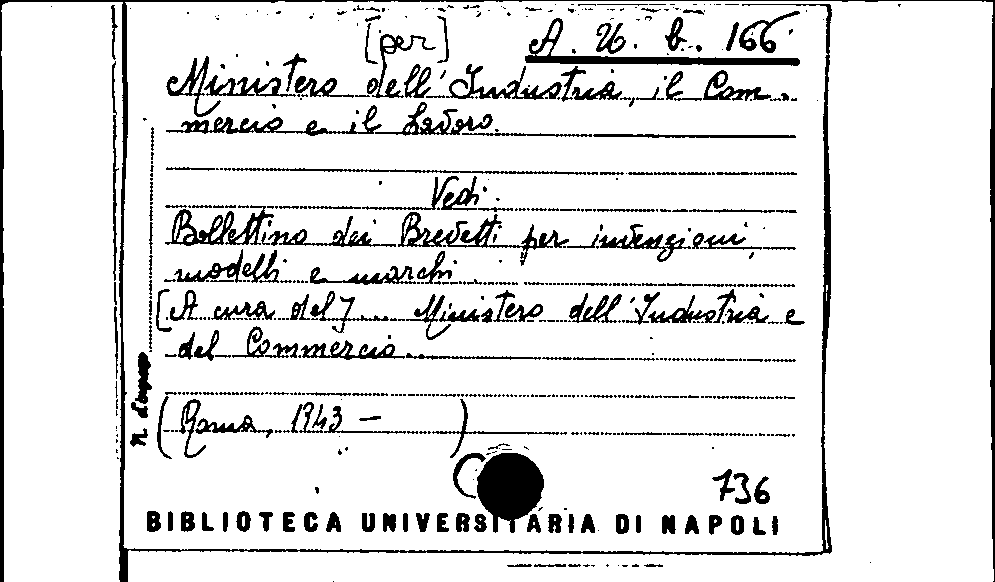 [per] A. U. b. 166
Ministero dell'Industria, il Com-
mercio e il Lavoro.
Vedi:
Bollettino dei Brevetti per invenzioni,
modelli e marchi.
[A cura del] ... Ministero dell'Industria e
del Commercio...
(Roma, 1943 - )
736
BIBLIOTECA UNIVERSITARIA DI NAPOLI
N. d'ingresso